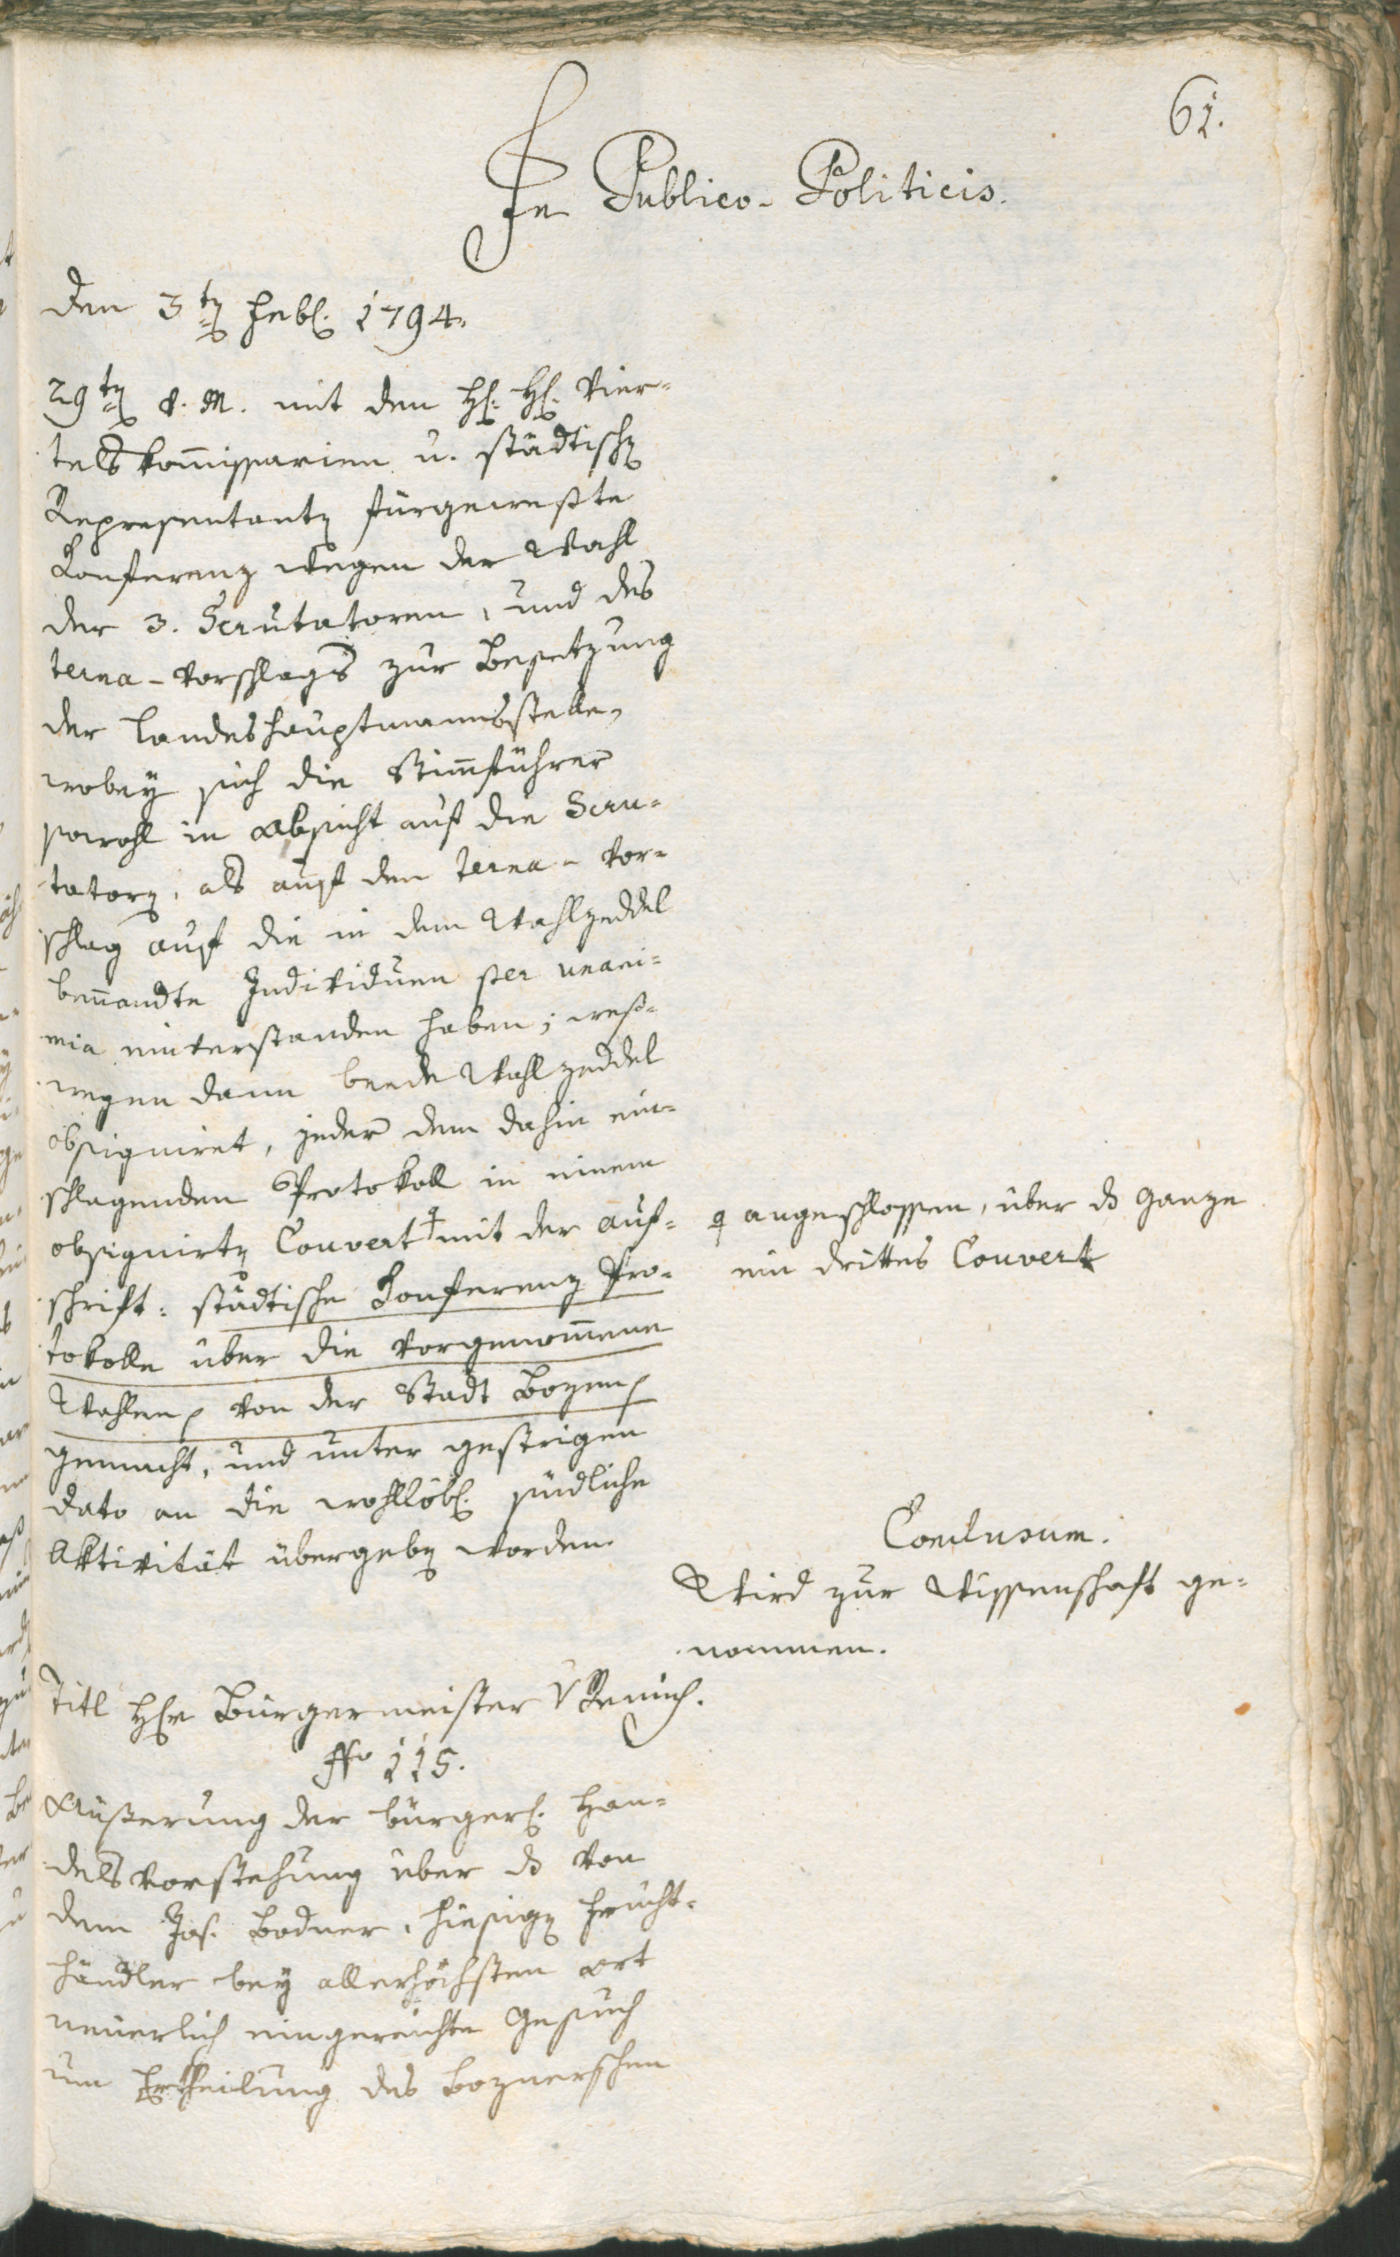 61.
In Publico-Politicis.
Den 3ten Febr. 1794.
29ten v. M. mit den H: H: Vier-
telskom̄issarien u. städtischen
Representanten fürgeweßte
Konferenz wegen der Wahl
der 3. Scrutatoren, und des
terna-Vorschlags zur Besetzung
der Landeshauptmannsstelle,
wobey sich die Stim̄führer
sowohl in Absicht auf die Scru-
tatoren, als auf den terna-Vor-
schlag auf die in dem Wahlzeddel
benan̄dte Individuen per unani-
mia einverstanden haben; weß-
wegen dann beede Wahlzeddel
obsigniret, jeder dem dahin ein-
schlagenden Protokoll in einem
obsignirten Couvert ♀ mit der Auf-
schrift: städtische Konferenz Pro-
tokolle über die vorgenom̄ene
Wahlen, von der Stadt Bozen,
gemacht, und unter gestrigen
dato an die wohllöbl. südliche
Aktivität übergeben worden.
♀ angeschlossen, über ds ganze
ein drittes Couvert
Conclusum.
Wird zur Wissenschaft ge-
nommen.
Titl Herr Bürgermeister v Remich.
No 115.
Äußerung der bürgerl. Han-
delsvorstehung über ds von
dem Jos. Bodner, hiesigen Frucht-
händler bey allerhöchsten Ort
neuerlich eingereichte Gesuch
um Ertheilung des Boznerschen